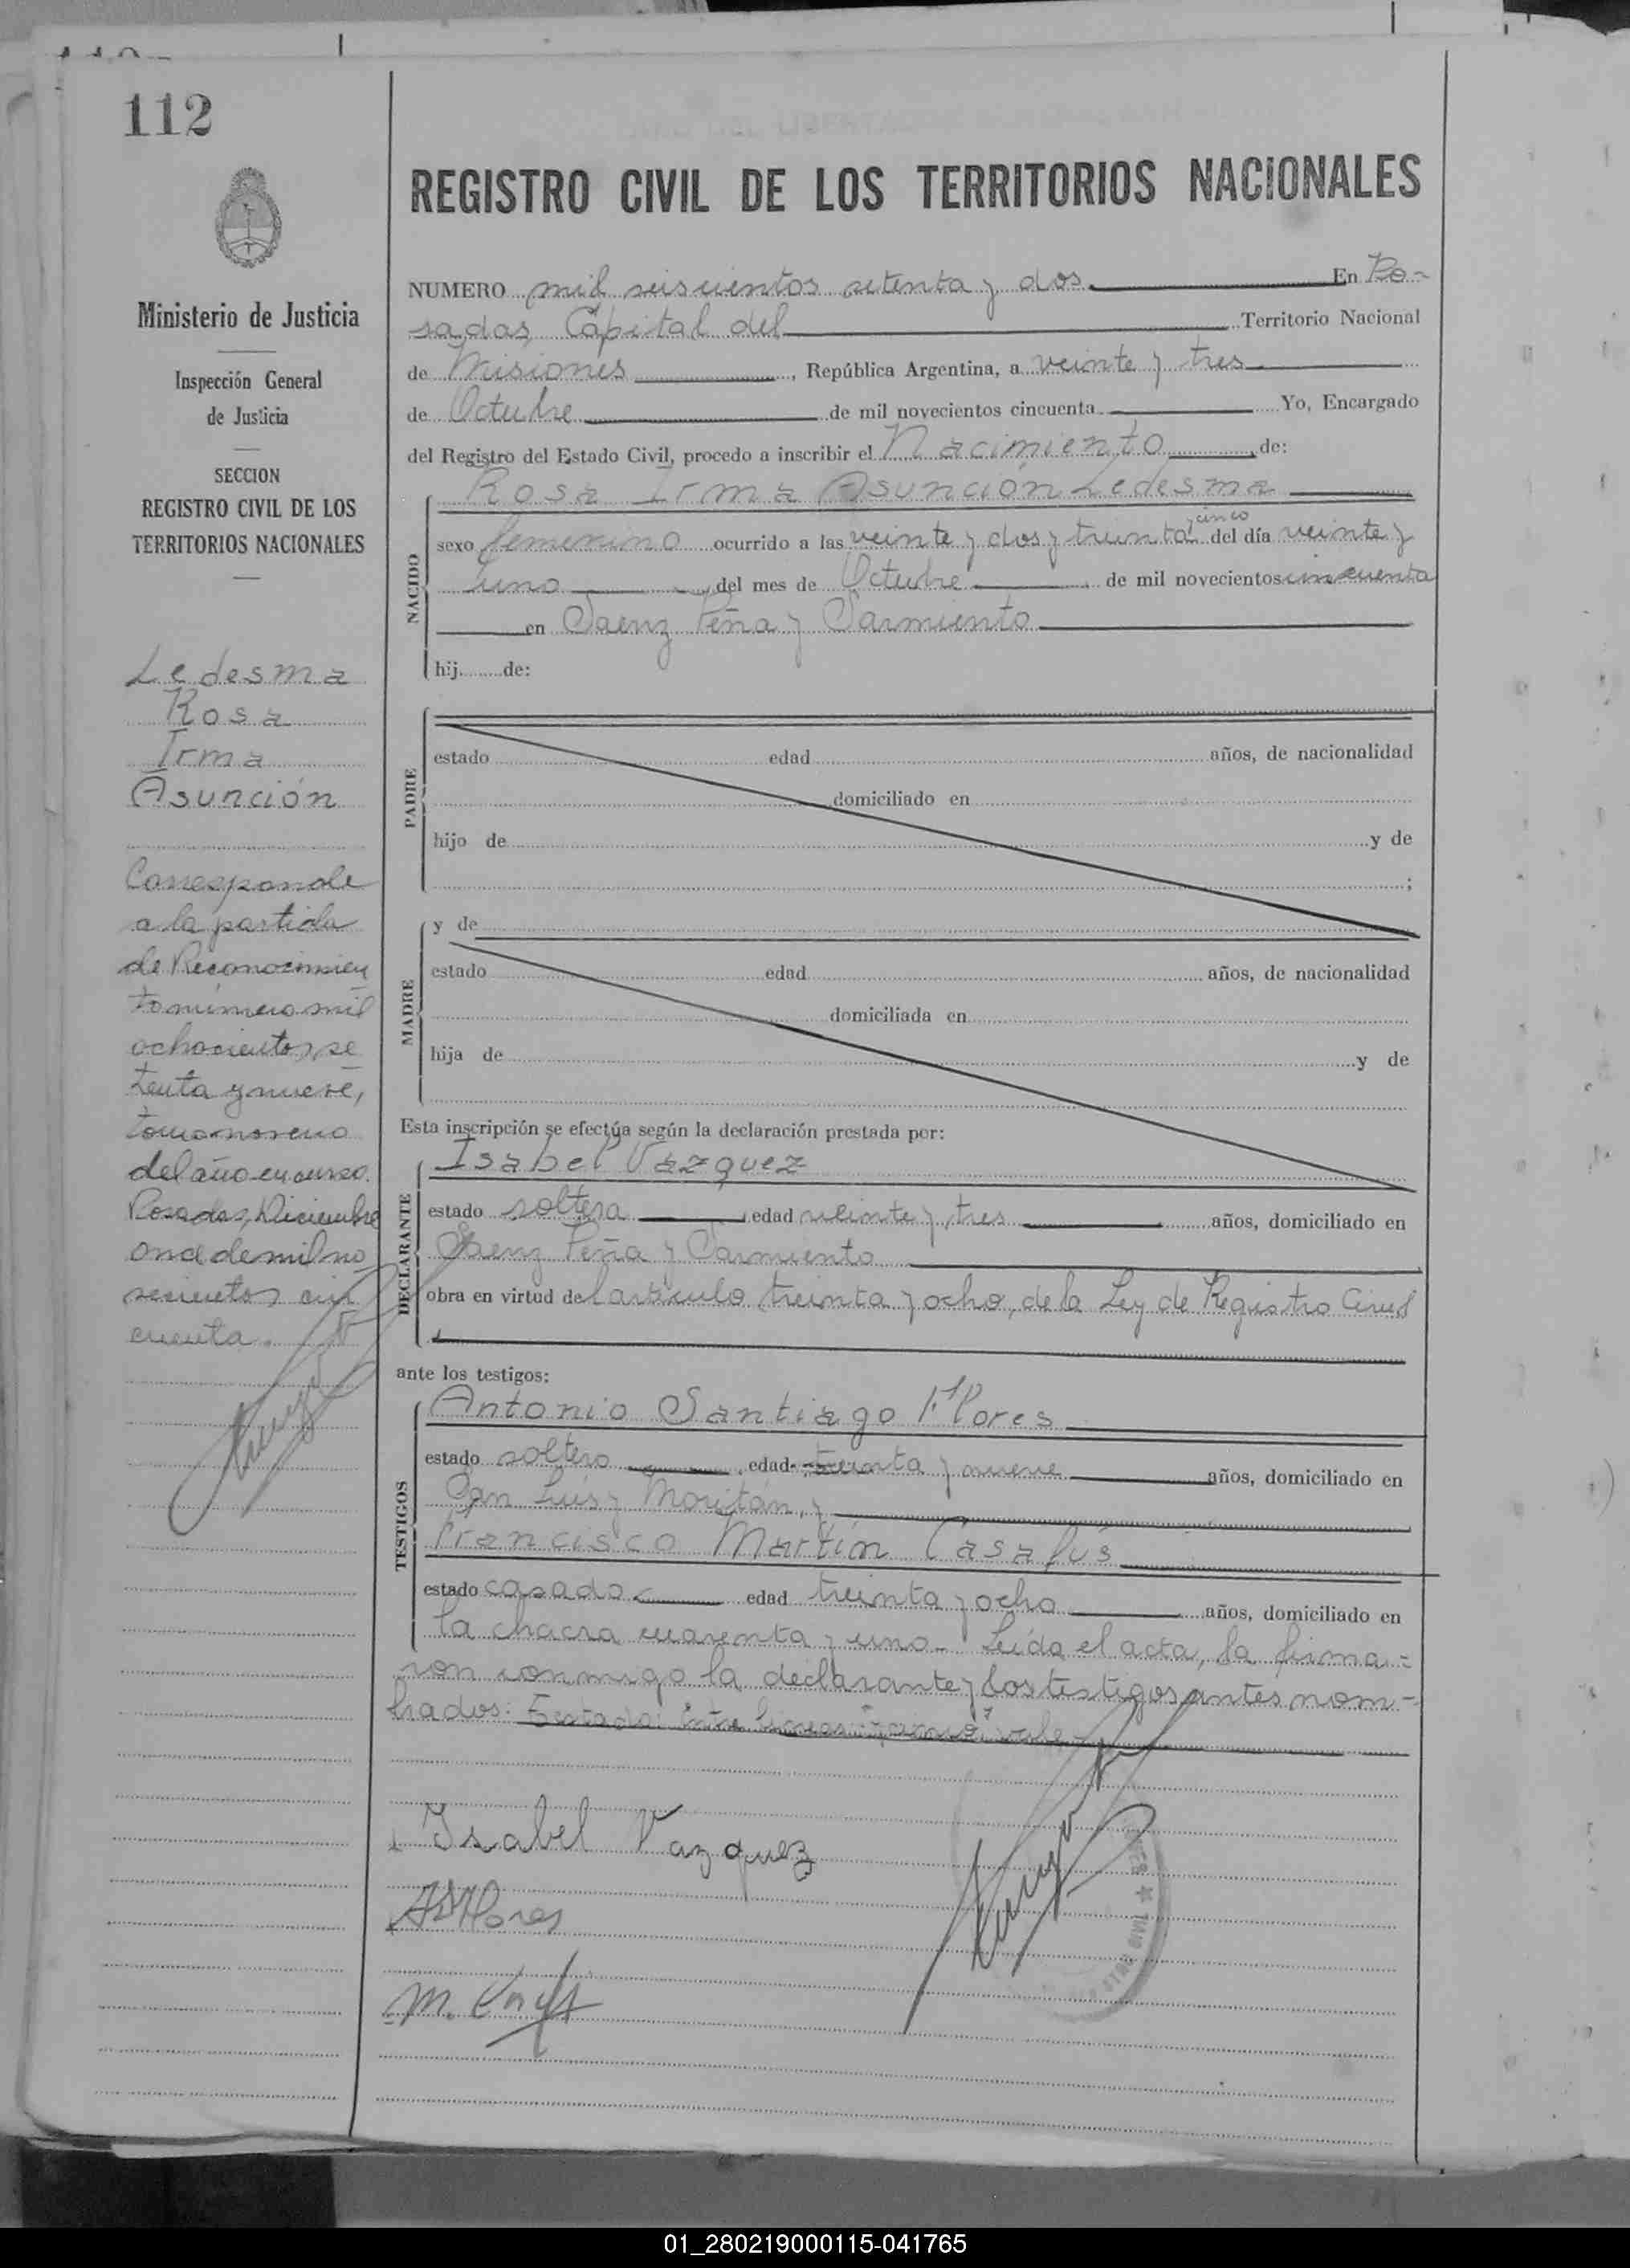 112
REGISTRO CIVIL DE LOS TERRITORIOS NACIONALES
Ministerio de Justicia
Inspección General
de Justicia
SECCION
REGISTRO CIVIL DE LOS
TERRITORIOS NACIONALES
Ledesma
Rosa
Irma
Asunción
Corresponde
a la partida
de Reconocimien
to número mil
ochocientos se
tenta y nueve,
tomo noveno
del año en curso.
Posadas, Diciembre
once de mil no
vecientos cin
cuenta.
NUMERO mil seiscientos setenta y dos En Po-
sadas, Capital del Territorio Nacional
de Misiones, República Argentina, a veinte y tres
de Octubre de mil novecientos cincuenta Yo, Encargado
del Registro del Estado Civil, procedo a inscribir el Nacimiento de:
NACIDO
Rosa Irma Asunción Ledesma
y cinco
sexo femenino ocurrido a las veinte y dos y treinta del día veinte y
uno del mes de Octubre de mil novecientos cincuenta
en Saenz Peña y Sarmiento
hij de:
PADRE
estado edad años, de nacionalidad
domiciliado en
hijo de y de
;
MADRE
y de
estado edad años, de nacionalidad
domiciliada en
hija de y de
Esta inscripción se efectúa según la declaración prestada por:
DECLARANTE
Isabel Vazquez
estado soltera edad veinte y tres años, domiciliado en
Saenz Peña y Sarmiento
obra en virtud del artículo treinta y ocho, de la Ley de Registro Civil
ante los testigos:
TESTIGOS
Antonio Santiago Flores
estado soltero edad treinta y nueve años, domiciliado en
San Luis y Moritán, y
Francisco Martín Casafús
estado casado edad treinta y ocho años, domiciliado en
la chacra cuarenta y uno - Leída el acta, la firma-
ron conmigo la declarante y los testigos antes nom-
brados: Entre lineas: y cinco, vale
Isabel Vazquez
ASFlores
M.
01_280219000115-041765